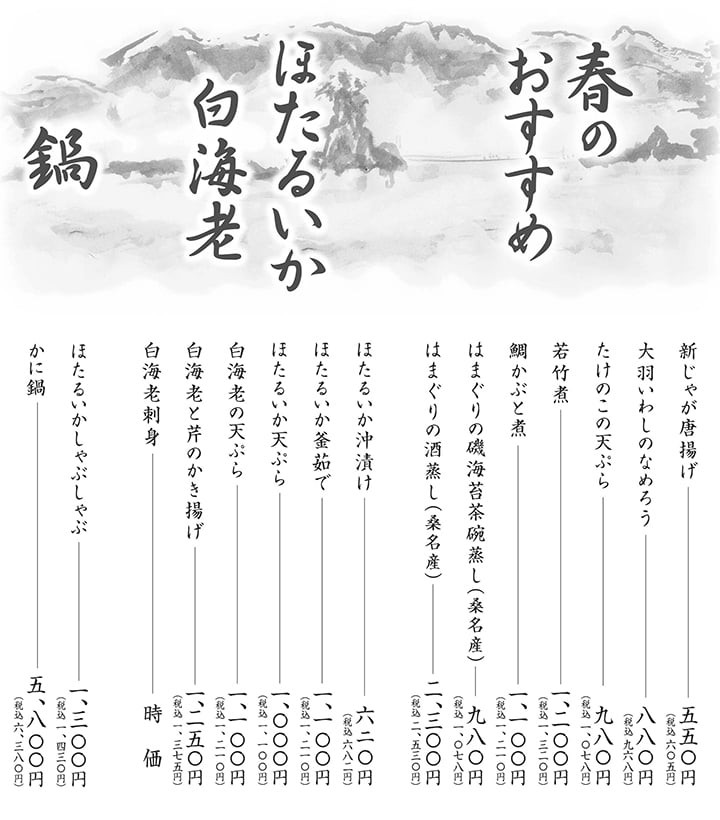 春の
おすすめ
ほたるいか
白海老
鍋
新じゃが唐揚げ 五五〇円
(税込 六〇五円)
大羽いわしのなめろう 八八〇円
(税込 九六八円)
たけのこの天ぷら 九八〇円
(税込 一、〇七八円)
若竹煮 一、二〇〇円
(税込 一、三二〇円)
鯛かぶと煮 一、一〇〇円
(税込 一、二一〇円)
はまぐりの磯海苔茶碗蒸し(桑名産) 九八〇円
(税込 一、〇七八円)
はまぐりの酒蒸し(桑名産) 二、三〇〇円
(税込 二、五三〇円)
ほたるいか沖漬け 六二〇円
(税込 六八二円)
ほたるいか釜茹で 一、一〇〇円
(税込 一、二一〇円)
ほたるいか天ぷら 一、〇〇〇円
(税込 一、一〇〇円)
白海老の天ぷら 一、一〇〇円
(税込 一、二一〇円)
白海老と芹のかき揚げ 一、二五〇円
(税込 一、三七五円)
白海老刺身 時価
ほたるいかしゃぶしゃぶ 一、三〇〇円
(税込 一、四三〇円)
かに鍋 五、八〇〇円
(税込 六、三八〇円)